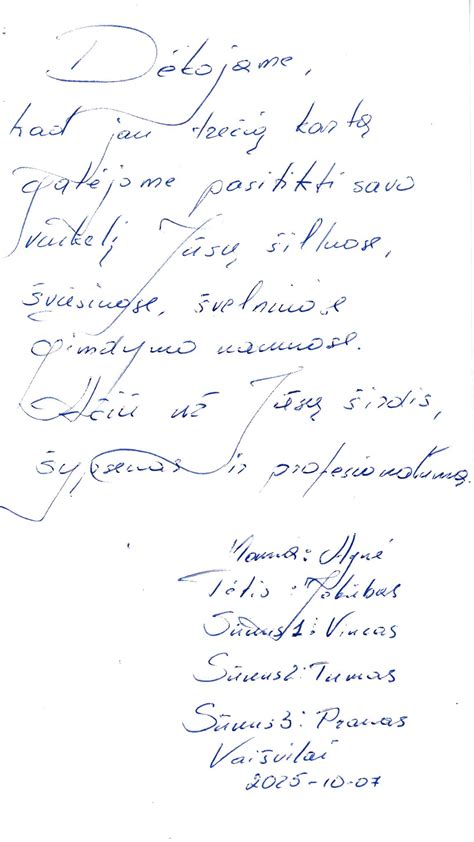 Dėkojame,
kad jau trečią kartą
galėjome pasitikti savo
vaikelį Jūsų šiltuose,
šviesiuose, švelniuose
gimdymo namuose.
Ačiū už Jūsų širdis,
šypsenas ir profesionalumą.
Mama: Agnė
Tėtis: Jokūbas
Sūnus1: Vincas
Sūnus2: Tumas
Sūnus3: Pranas
Vaišvilai
2025-10-07